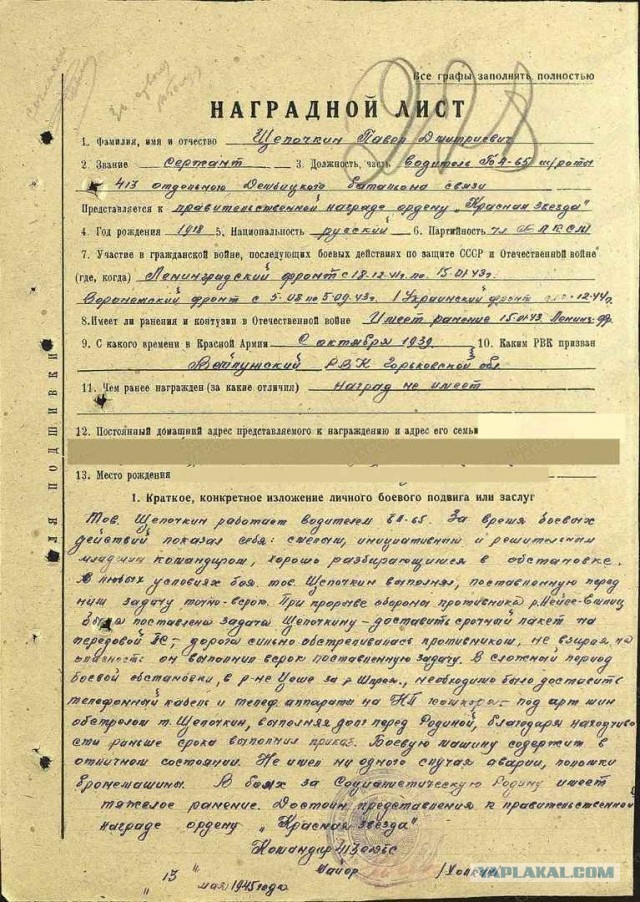 Все графы заполнять полностью
НАГРАДНОЙ ЛИСТ
1. Фамилия, имя и отчество Щепочкин Павел Дмитриевич
2. Звание сержант 3. Должность, часть водитель БА-64 роты
413 отдельного Дембицкого батальона связи
Представляется к правительственной награде ордену „Красная звезда"
4. Год рождения 1918 5. Национальность русский 6. Партийность чл ВЛКСМ
7. Участие в гражданской войне, последующих боевых действиях по защите СССР и Отечественной войне
(где, когда) Ленинградский фронт с 18-12-41 по 15-01-43г.
Воронежский фронт с 5-08 по 5-09-43г. 1 Украинский фронт 12-44г.
8. Имеет ли ранения и контузии в Отечественной войне Имеет ранение 15.01.43 Ленинг. фр.
9. С какого времени в Красной Армии С октября 1939 10. Каким РВК призван
РВК Горьковской обл
11. Чем ранее награжден (за какие отличия) наград не имеет
12. Постоянный домашний адрес представляемого к награждению и адрес его семьи
13. Место рождения
1. Краткое, конкретное изложение личного боевого подвига или заслуг
Тов. Щепочкин работает водителем За время боевых
действий показал себя: смелым, инициативным и решительным
младшим командиром, хорошо разбирающимся в обстановке.
В любых условиях боя тов. Щепочкин выполнял, поставленную перед
ним задачу точно в срок. При прорыве обороны противника р. Нейсе
была поставлена задача Щепочкину - доставить срочный пакет на
передовой дорога сильно обстреливалась противником, не взирая на
опасность он выполнил в срок поставленную задачу. В сложный период
боевой обстановки, в р-не за р. необходимо было доставить
телефонный кабель и телеф. аппараты на НП под арт мин
обстрелом т. Щепочкин, выполняя долг перед Родиной, благодаря находчиво
сти раньше срока выполнил приказ. Боевую машину содержит в
отличном состоянии. Не имел ни одного случая аварии, поломки
бронемашины. В боях за Социалистическую Родину имеет
тяжелое ранение. Достоин представления к правительственной
награде ордену „Красная звезда"
Командир 413
майор
„13" мая 1945 года
YAPLAKAL.COM
ДЛЯ ПОДШИВКИ